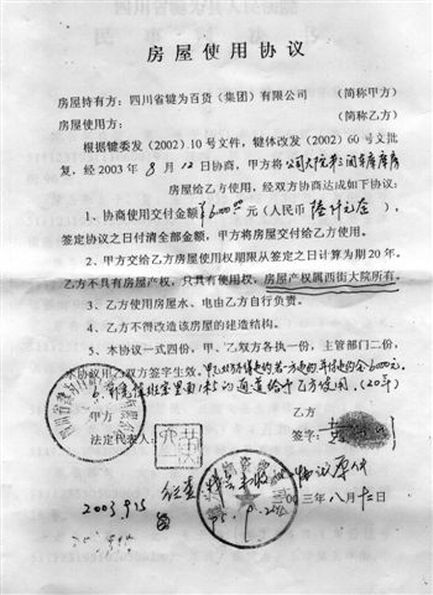 房屋使用协议
房屋持有方：四川省犍为百货（集团）有限公司　（简称甲方）
房屋使用方：　（简称乙方）
根据犍委发（2002）10号文件，犍体改发（2002）60号文批
复，经2003年8月12日协商，甲方将公司大院第三间车库库房
房屋给乙方使用，经双方协商达成如下协议：
1、协商使用交付金额￥6000元（人民币陆仟元正），
签定协议之日付清全部金额，甲方将房屋交付给乙方使用。
2、甲方交给乙方房屋使用权期限从签定之日计算为期20年。
乙方不具有房屋产权，只具有使用权，房屋产权属西街大院所有。
3、乙方使用房屋水、电由乙方自行负责。
4、乙方不得改造该房屋的建造结构。
5、本协议一式四份，甲、乙双方各执一份，主管部门二份，
本协议甲乙双方签字生效。
的通道给予乙方使用。（20年）
甲方　乙方
法定代表人：　签字：
协议原件
2003.9.15
00三年八月十二日